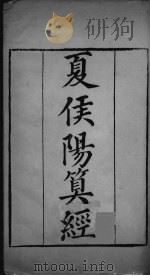 研狗
夏侯陽算經
mtoou.info yuntsg.com